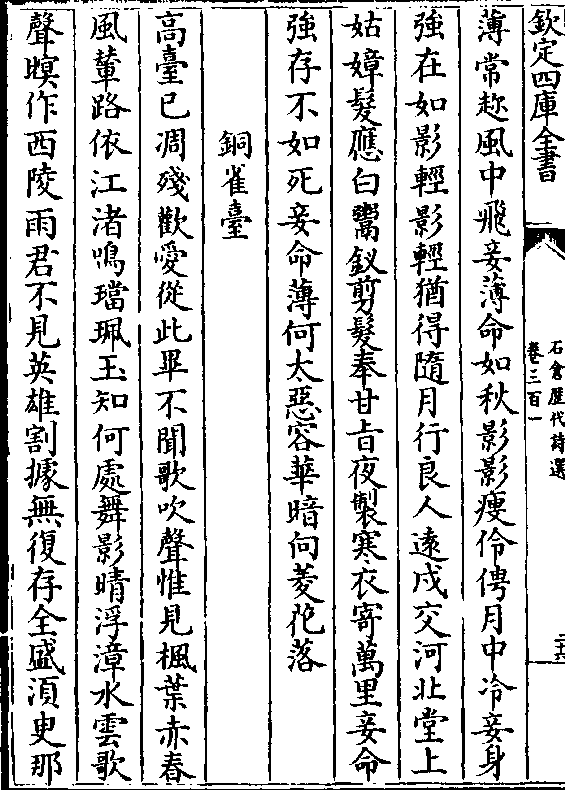 欽定四庫全書
石倉歷代詩選
卷三百一
薄常趂風中飛妾薄命如秋影影瘦伶俜月中冷妾身
強在如影輕影輕猶得隨月行良人遠戍交河北堂上
姑嫜髮應白鬻釵剪髮奉甘旨夜製寒衣寄萬里妾命
強存不如死妾命薄何太惡容華暗向菱花落
銅雀臺
高臺已凋殘歡愛從此畢不聞歌吹聲惟見楓葉赤春
風輦路依江渚鳴璫珮玉知何處舞影晴浮漳水雲歌
聲暝作西陵雨君不見英雄割據無復存全盛湏臾那